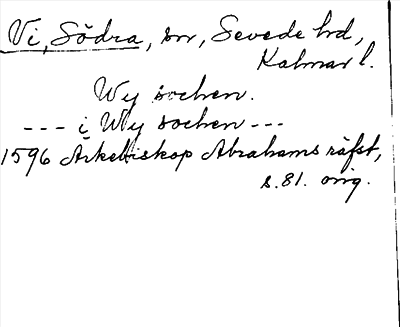 Vi, Södra, sn, Sevede hd,
Kalmar l.
Wy sochen.
--- i Wy sochen ---
1596 Ärkebiskop Abrahams räfst,
s. 81. orig.